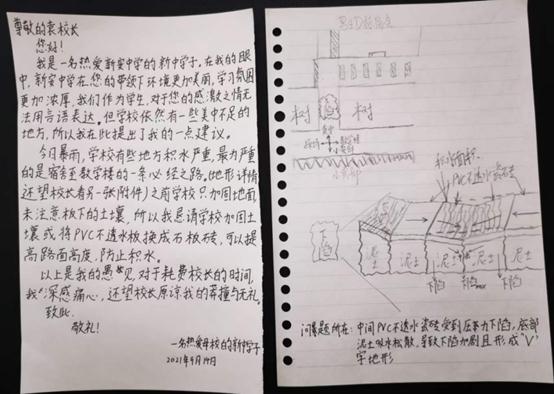 尊敬的袁校长
您好!
我是一名热爱新安中学的新中学子。在我的眼
中,新安中学在您的带领下环境更加美丽,学习氛围
更加浓厚。我们作为学生,对于您的感激之情无
法用言语表达。但学校依然有一些美中不足的
地方,所以我在此提出了我的一点建议。
今日暴雨,学校有些地方积水严重,最为严重
的是宿舍至教学楼的一条必经之路。(地形详情
还望校长看另一张附件)之前学校只加固地面,
未注意板下的土壤,所以我恳请学校加固土
壤或将PVC不透水板换成石板砖,可以提
高路面高度,防止积水。
以上是我的愚见,对于耗费校长的时间,
我深感痛心,还望校长原谅我的莽撞与无礼。
致此
敬礼!
一名热爱母校的新中学子
2021年9月14日
树
树
积水面积
PVC不透水瓷砖
下陷
泥土
泥土
泥土
泥土
泥土
下陷
下陷max
下陷
问题所在:中间PVC不透水瓷砖受到压力下陷,底部
泥土吸水松散,导致下陷加剧且形成“V”
字地形